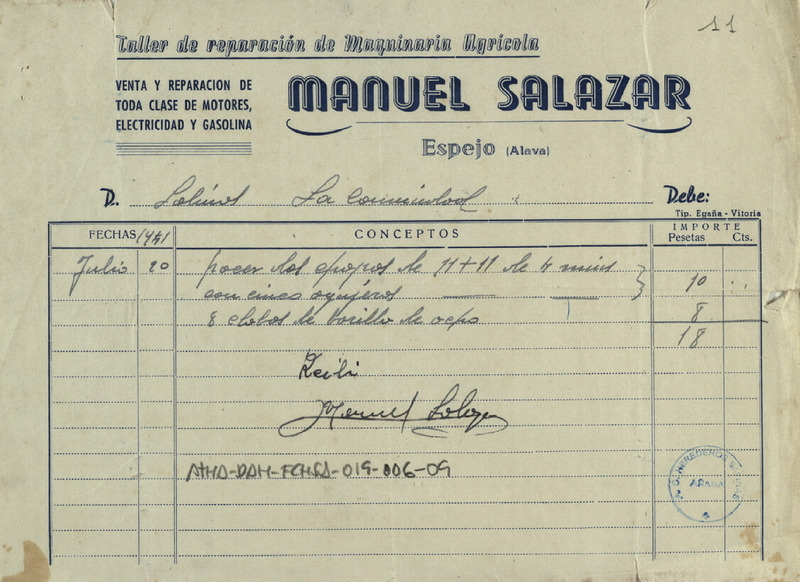 11
Taller de reparación de Maquinaria Agrícola
VENTA Y REPARACION DE
TODA CLASE DE MOTORES,
ELECTRICIDAD Y GASOLINA
MANUEL SALAZAR
Espejo (Alava)
D. Salinas La Comunidad Debe:
Tip. Egaña - Vitoria
FECHAS 1941 CONCEPTOS IMPORTE
Pesetas Cts.
Julio 20 dos de 11+11 de 4 10
con cinco agujeros
8 de varilla de 8
18
Recibi
Manuel Salazar
ATHA-DAH-FCHSA-019-006-09
HEREDEROS
ARANA